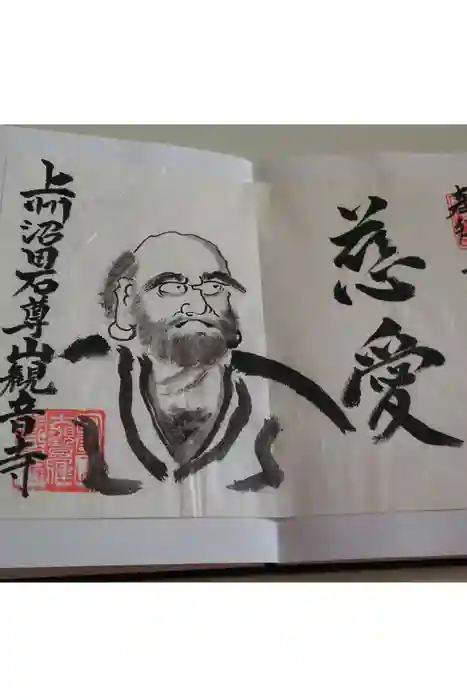 慈愛
上州沼田石尊山観音寺